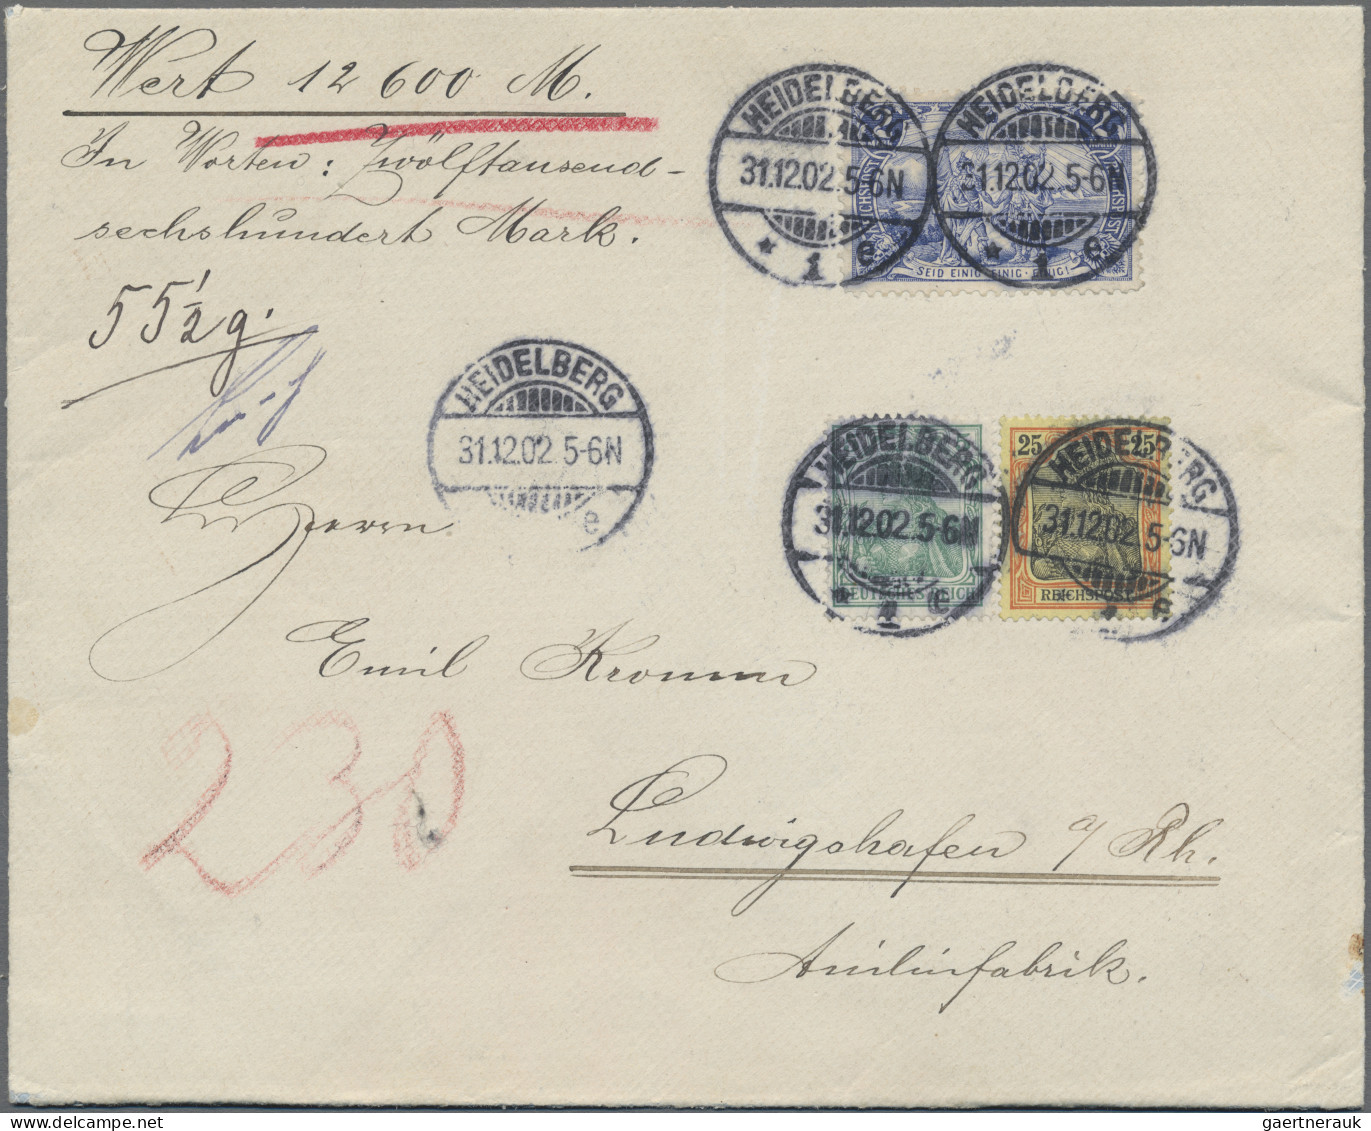 Wert 12 600 M.
In Worten: Zwölftausend-
sechshundert Mark.
55 1/2 g.
HEIDELBERG
31.12.02. 5-6N
* 1 e
HEIDELBERG
31.12.02. 5-6N
* 1 e
REICHSPOST
SEID EINIG · EINIG · EINIG!
HEIDELBERG
31.12.02. 5-6N
e
HEIDELBERG
31.12.02. 5-6N
* 1 e
DEUTSCHES REICH
25 25
HEIDELBERG
31.12.02. 5-6N
* e
REICHSPOST
Herrn
Emil Kromm
230
Ludwigshafen a/ Rh.
Anilinfabrik.
gaertnerauk